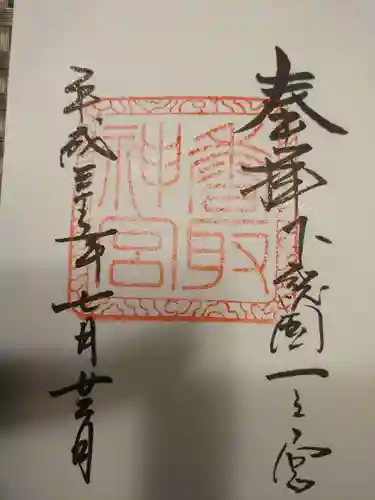 奉拝下総国一之宮
香取
神宮
平成三十年七月廿二日